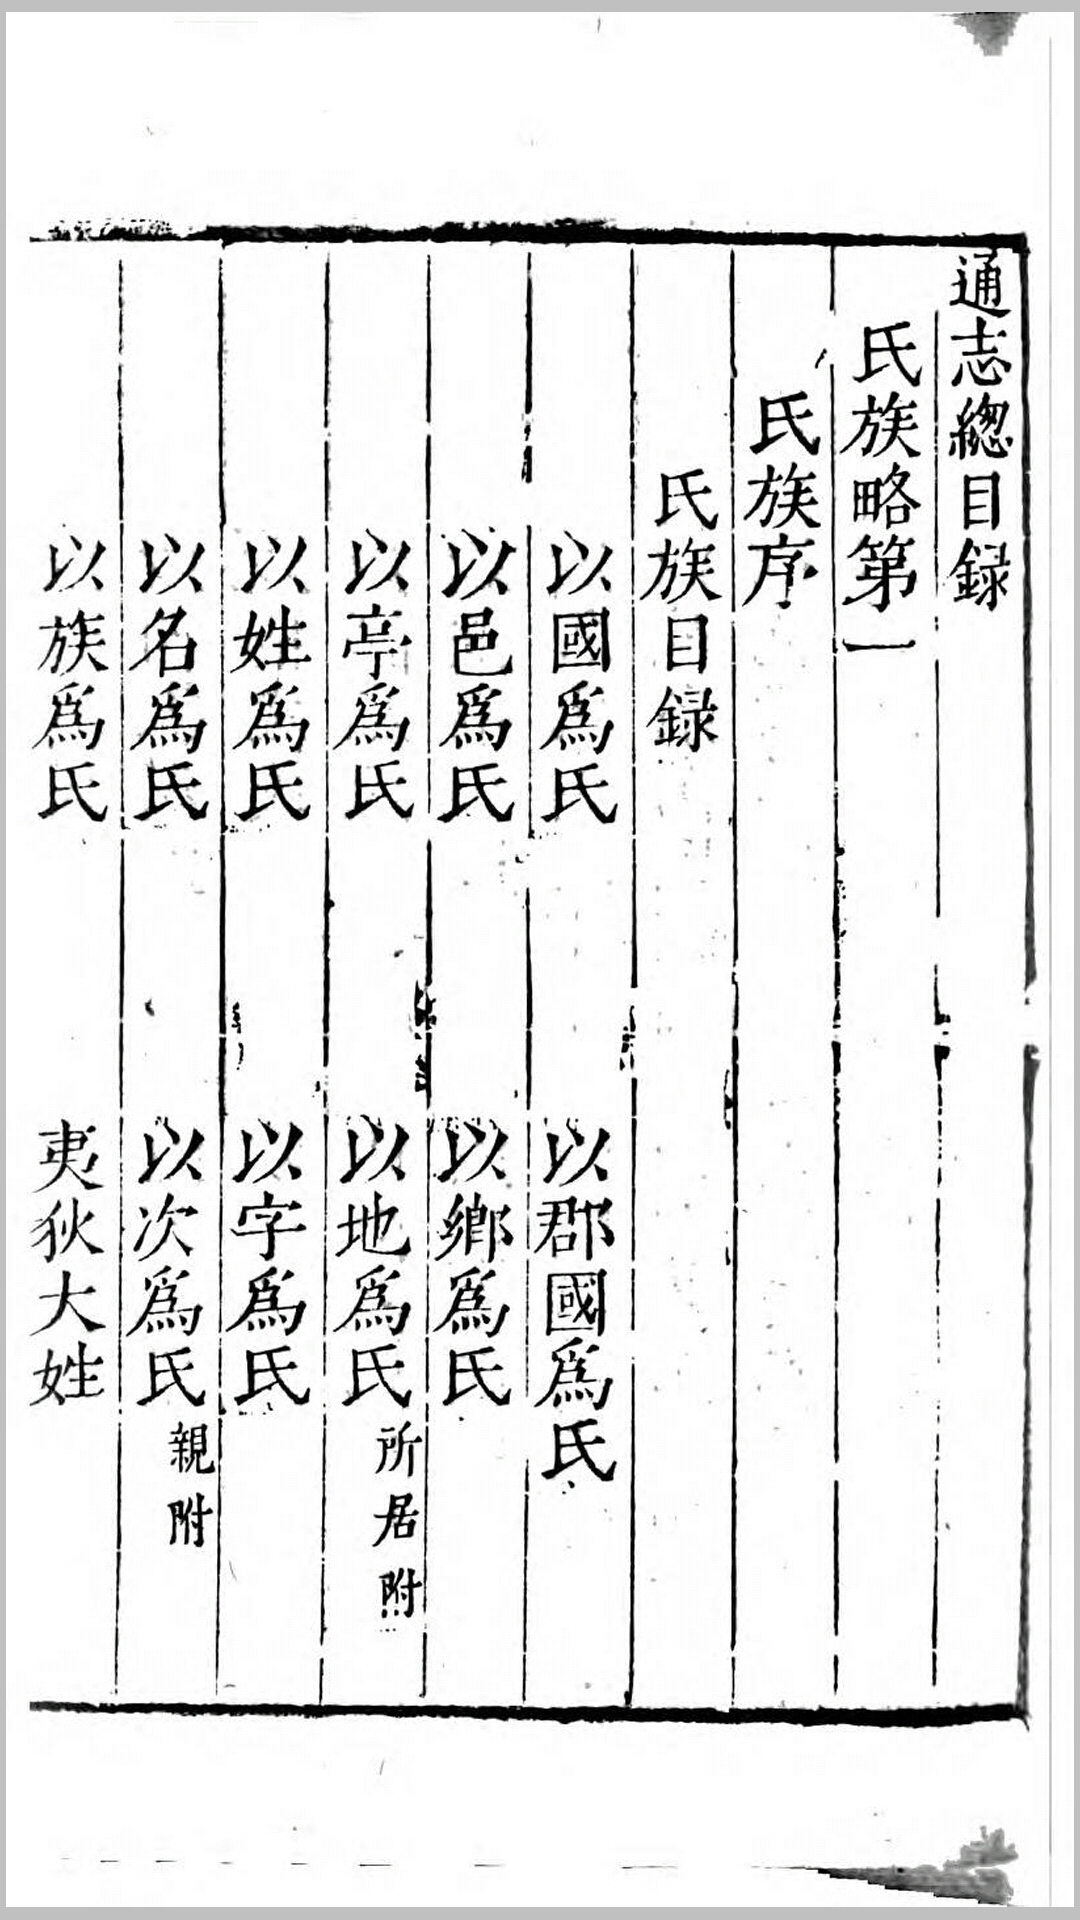 通志總目録
氏族略第一
氏族序
氏族目録
以國爲氏 以郡國爲氏
以邑爲氏 以鄉爲氏
以亭爲氏 以地爲氏 所居附
以姓爲氏 以字爲氏
以名爲氏 以次爲氏 親附
以族爲氏 夷狄大姓